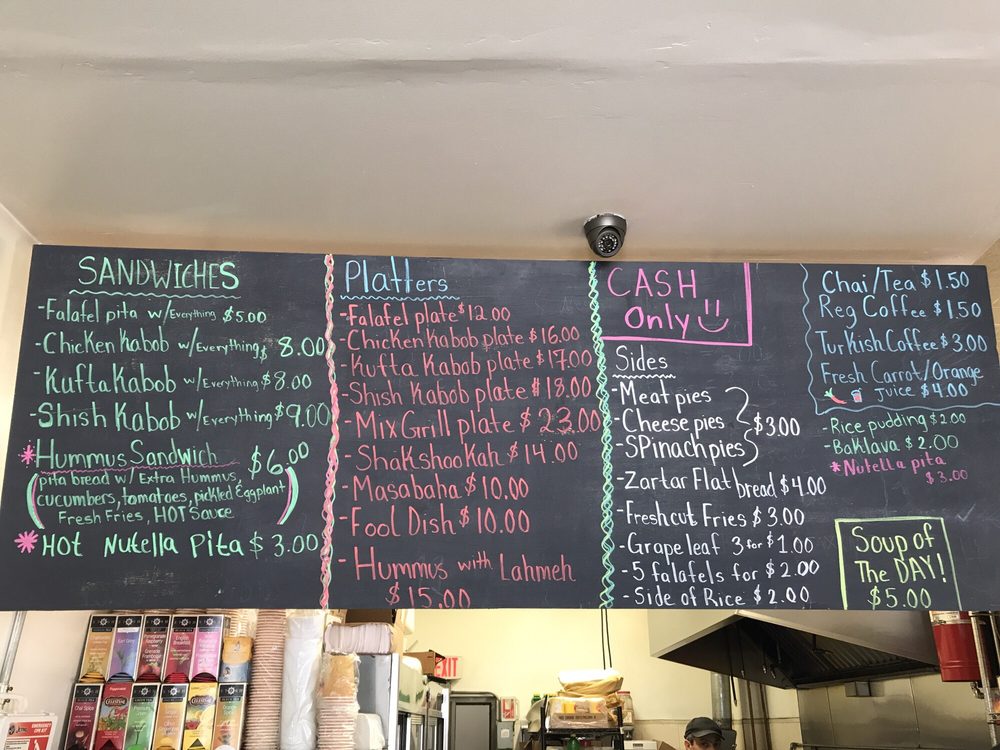 SANDWICHES
-Falafel pita w/Everything $5.00
-Chicken Kabob w/Everything $ 8.00
-Kufta Kabob w/Everything $8.00
-Shish Kabob w/Everything $9.00
*Hummus Sandwich $6.00
(pita bread w/ Extra Hummus,
cucumbers, tomatoes, pickled Eggplant)
Fresh Fries, HOT Sauce
*Hot Nutella Pita $ 3.00
Platters
-Falafel plate $12.00
-Chicken Kabob plate $16.00
-Kufta Kabob plate $17.00
-Shish Kabob plate $18.00
-Mix Grill plate $23.00
-Shakshookah $14.00
-Masabaha $10.00
-Fool Dish $10.00
-Hummus with Lahmeh
$15.00
CASH
Only
Sides
-Meat pies
-Cheese pies
-SPinach pies
$3.00
-Zartar Flat bread $4.00
-Fresh cut Fries $3.00
-Grape leaf 3 for $1.00
-5 falafels for $2.00
-Side of Rice $2.00
Chai/Tea $1.50
Reg Coffee $1.50
Turkish Coffee $3.00
Fresh Carrot/Orange
Juice $4.00
-Rice pudding $2.00
-Baklava $2.00
*Nutella pita
$3.00
Soup of
The DAY!
$5.00
EXIT